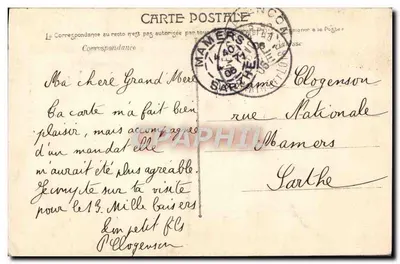 CARTE POSTALE
La Correspondance au recto n'est pas
Correspondance
ALENÇON
MAMERS
SARTHE
Ma chere Grand'Mère
Ta carte m'a fait bien
plaisir, mais accompagnée
d'un mandat elle
m'aurait été plus agreable.
Je compte sur ta visite
pour le 19. Mille baisers
Ton petit fils
P Clogenson
Madame Clogenson
rue Nationale
Mamers
Sarthe